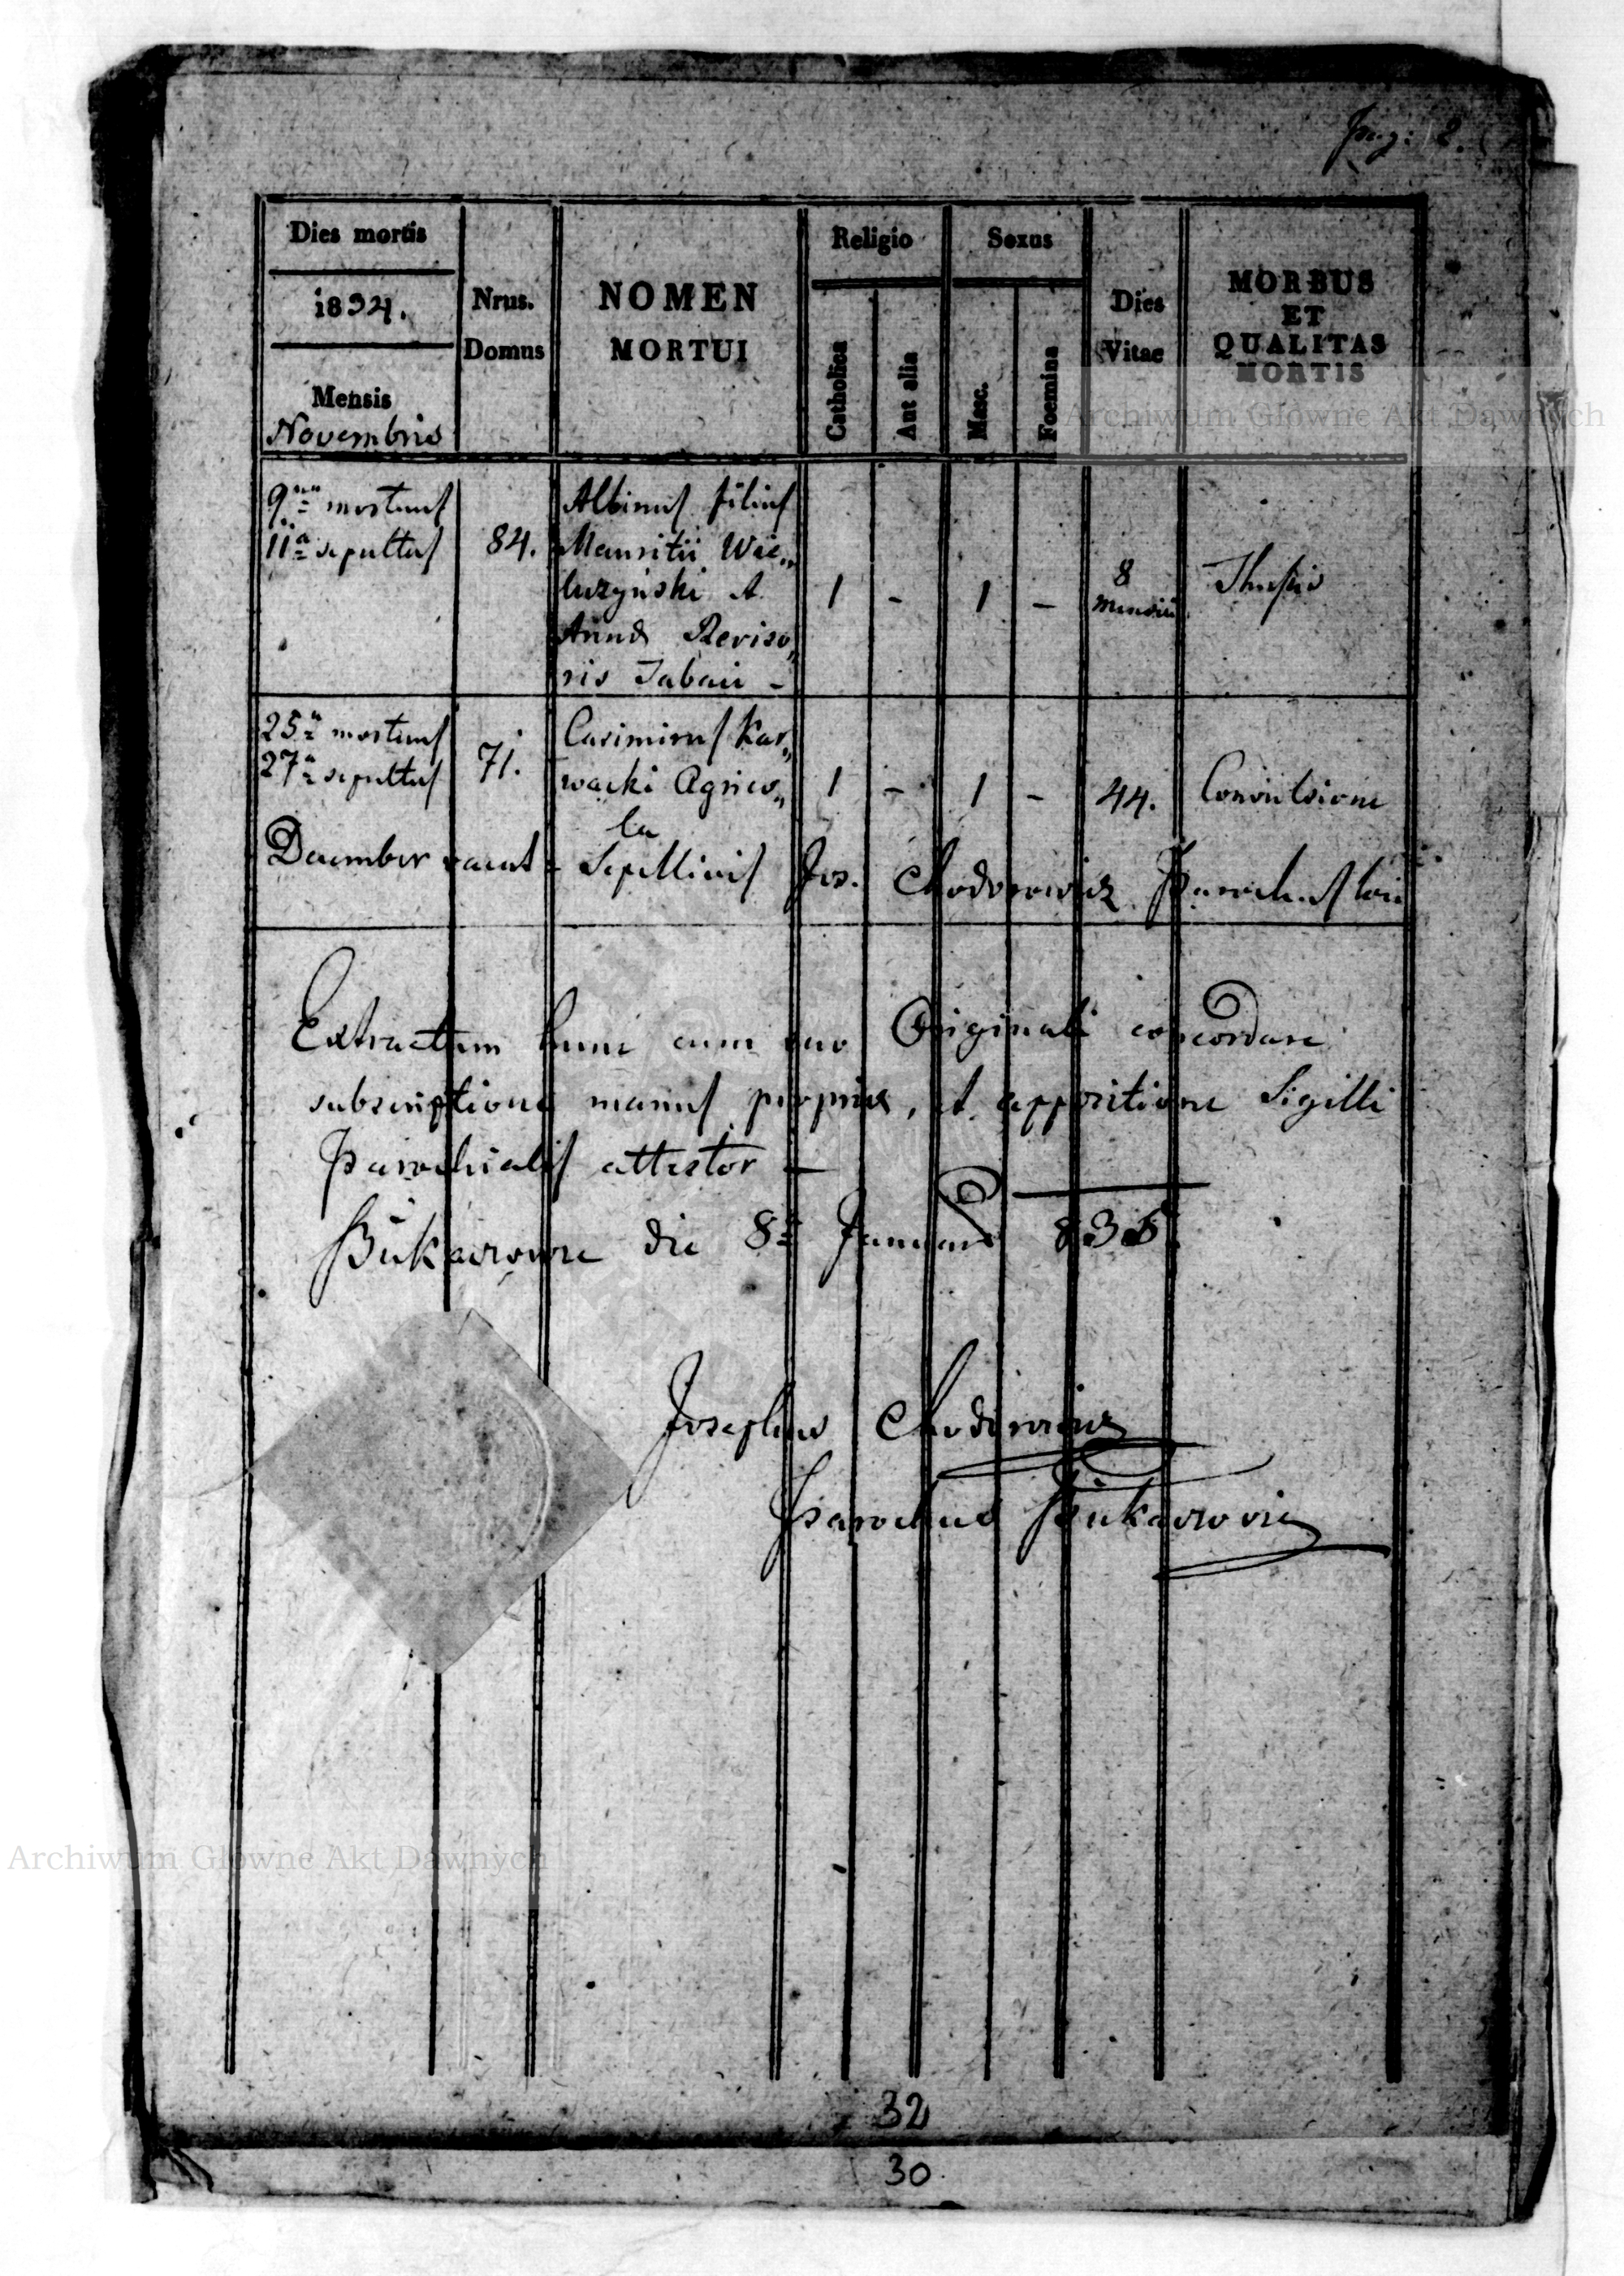 pag: 2.
Dies mortis
1834.
Mensis
Novembris
Nrus.
Domus
NOMEN
MORTUI
Religio
Catholica
Aut alia
Sexus
Masc.
Foemina
Dies
Vitae
MORBUS
ET
QUALITAS
MORTIS
Archiwum Glowne Akt Dawnych
9na mortuus
11a sepultus
84.
Albinus filius
Mauritii Wie„
luzynski et
Annae Reviso„
ris Tabaci -
1
-
1
-
8
mensium
Thussis
25a mortuus
27a sepultus
71.
Casimirus Kar„
wacki Agrico„
la
1
-
1
-
44.
Convulsione
December vacat - Sepelivit Jos. Chodorowicz Parochus loci
Extractum hunc cum suo Originali concordare
subscriptione manus propriae, et appositione Sigilli
Parochialis attestor -
Bukaczowce die 8a Januarii 835
Josephus Chodorowicz
Parochus Bukaczovien
Archiwum Glowne Akt Dawnych
32
30